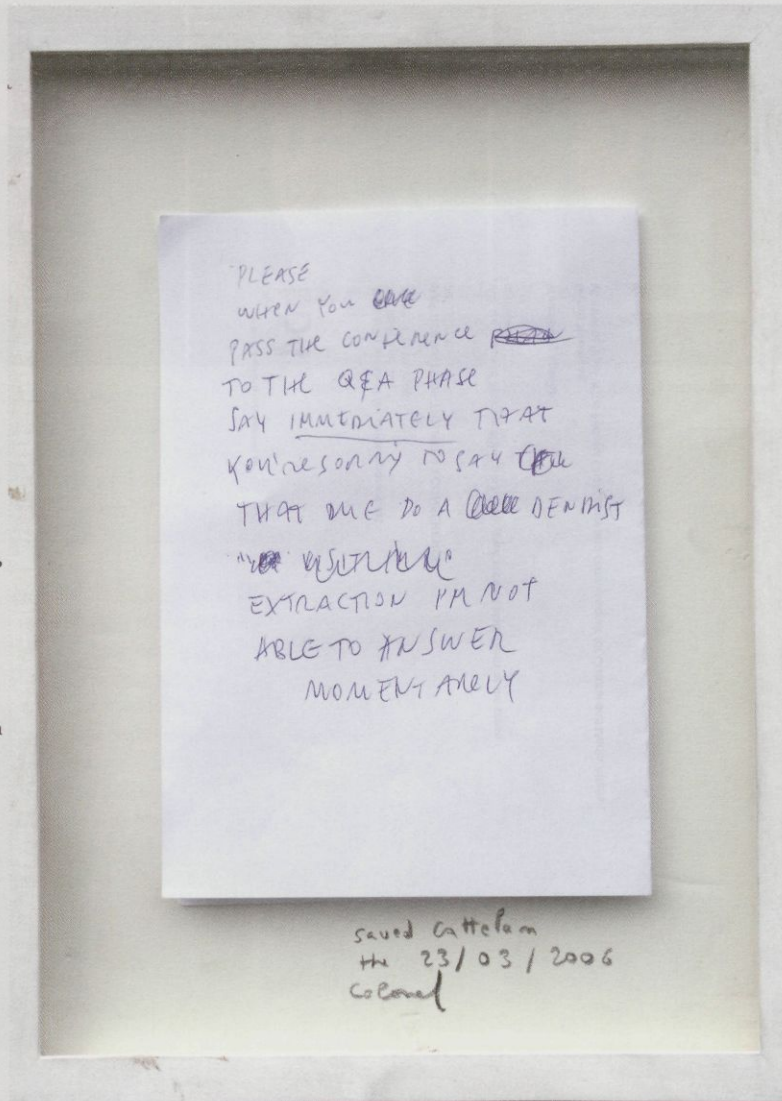 PLEASE
WHEN YOU
PASS THE CONFERENCE
TO THE Q&A PHASE
SAY IMMEDIATELY THAT
YOU'RE SORRY TO SAY
THAT DUE DO A DENTIST
EXTRACTION I'M NOT
ABLE TO ANSWER
MOMENTARELY
saved Cattelan
the 23/03/2006
Colonel